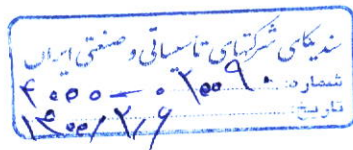 سندیکای شرکتهای تاسیساتی و صنعتی ایران
شماره: ۳۰۰۹۰ - ۴۰۵۰
تاریخ: ۱۴۰۰/۲/۶